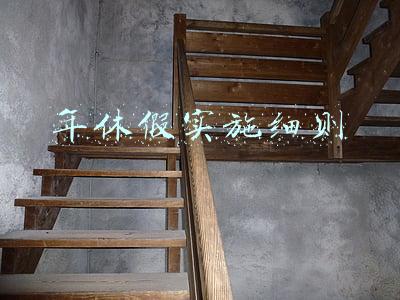 年休假实施细则